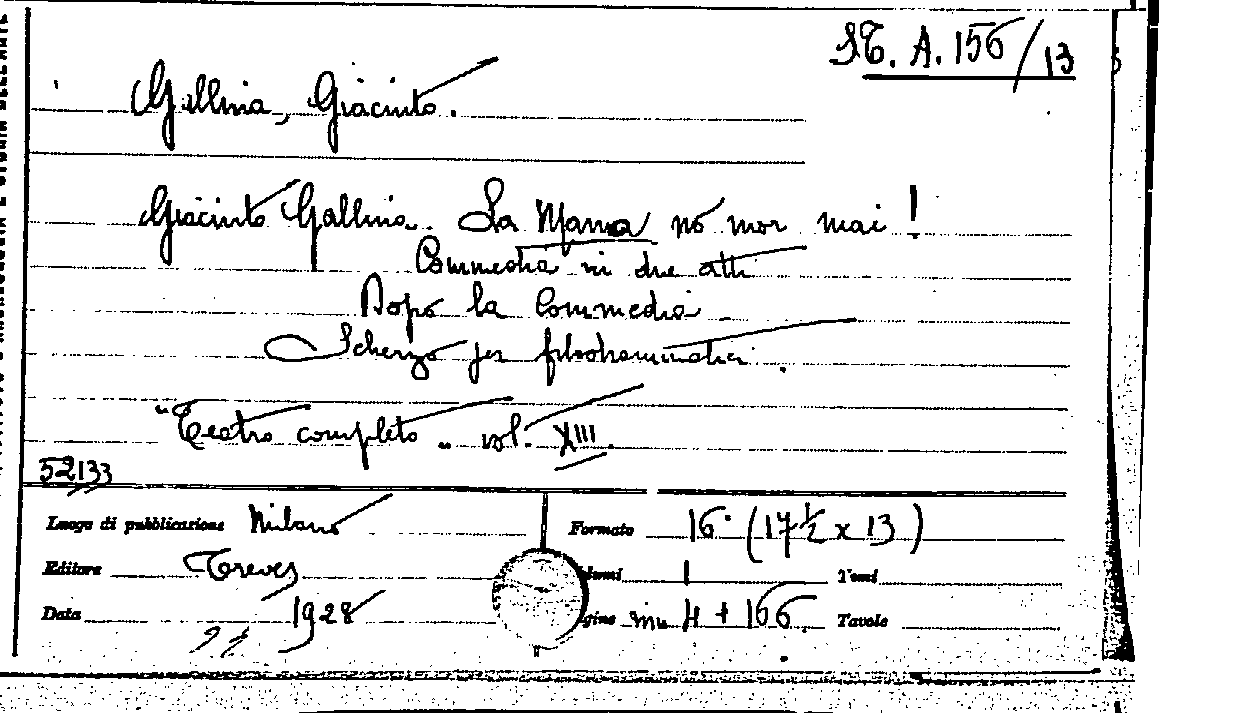 ST. A. 156/13
Gallina, Giacinto.
Giacinto Gallina. La Mama no mor mai!
Commedia in due atti
Dopo la Commedia
Scherzo per filodrammatici.
"Teatro completo" vol. XIII.
52133
Luogo di pubblicazione Milano Formato 16° (17 ½ x 13)
Editore Treves lumi 1 Tomi
Data 1928 gine in 4 + 166 Tavole